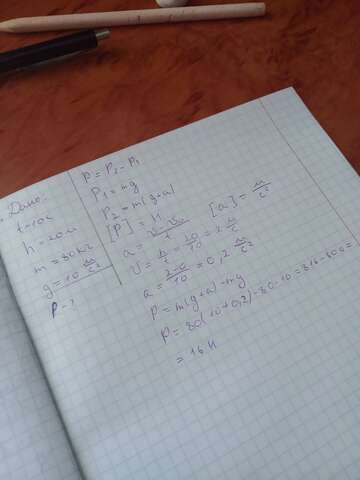 Дано:
t=10c
h=20м
m=80кг
g=10 м/с²
P-?
P=P₂-P₁
P₁=mg
P₂=m(g+a)
[P]=H
a=v-v₀/t [a]=м/с²
V=h/t=20/10=2 м/с
a=2-0/10=0,2 м/с²
P=m(g+a)-mg
P=80(10+0,2)-80·10=816-800=
=16H